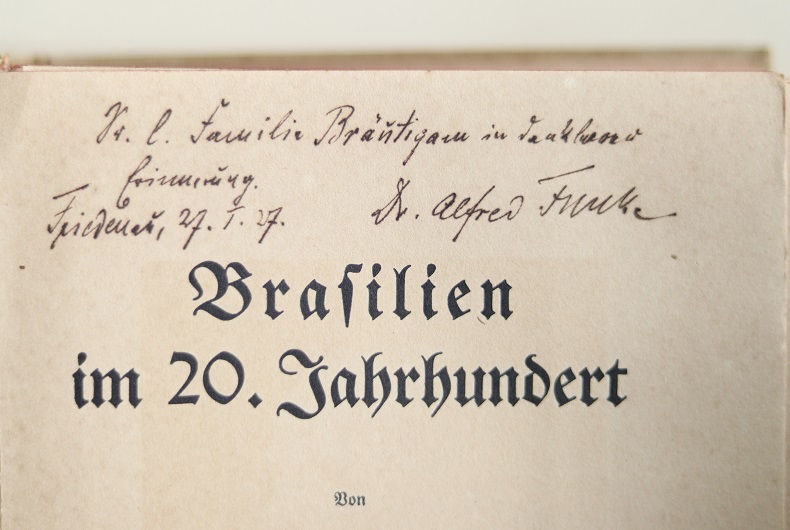 Sr. l. Familie Bräutigam in dankbarer
Erinnerung.
Friedenau, 27. I. 27. Dr. Alfred Funke
Braſilien
im 20. Jahrhundert
Von